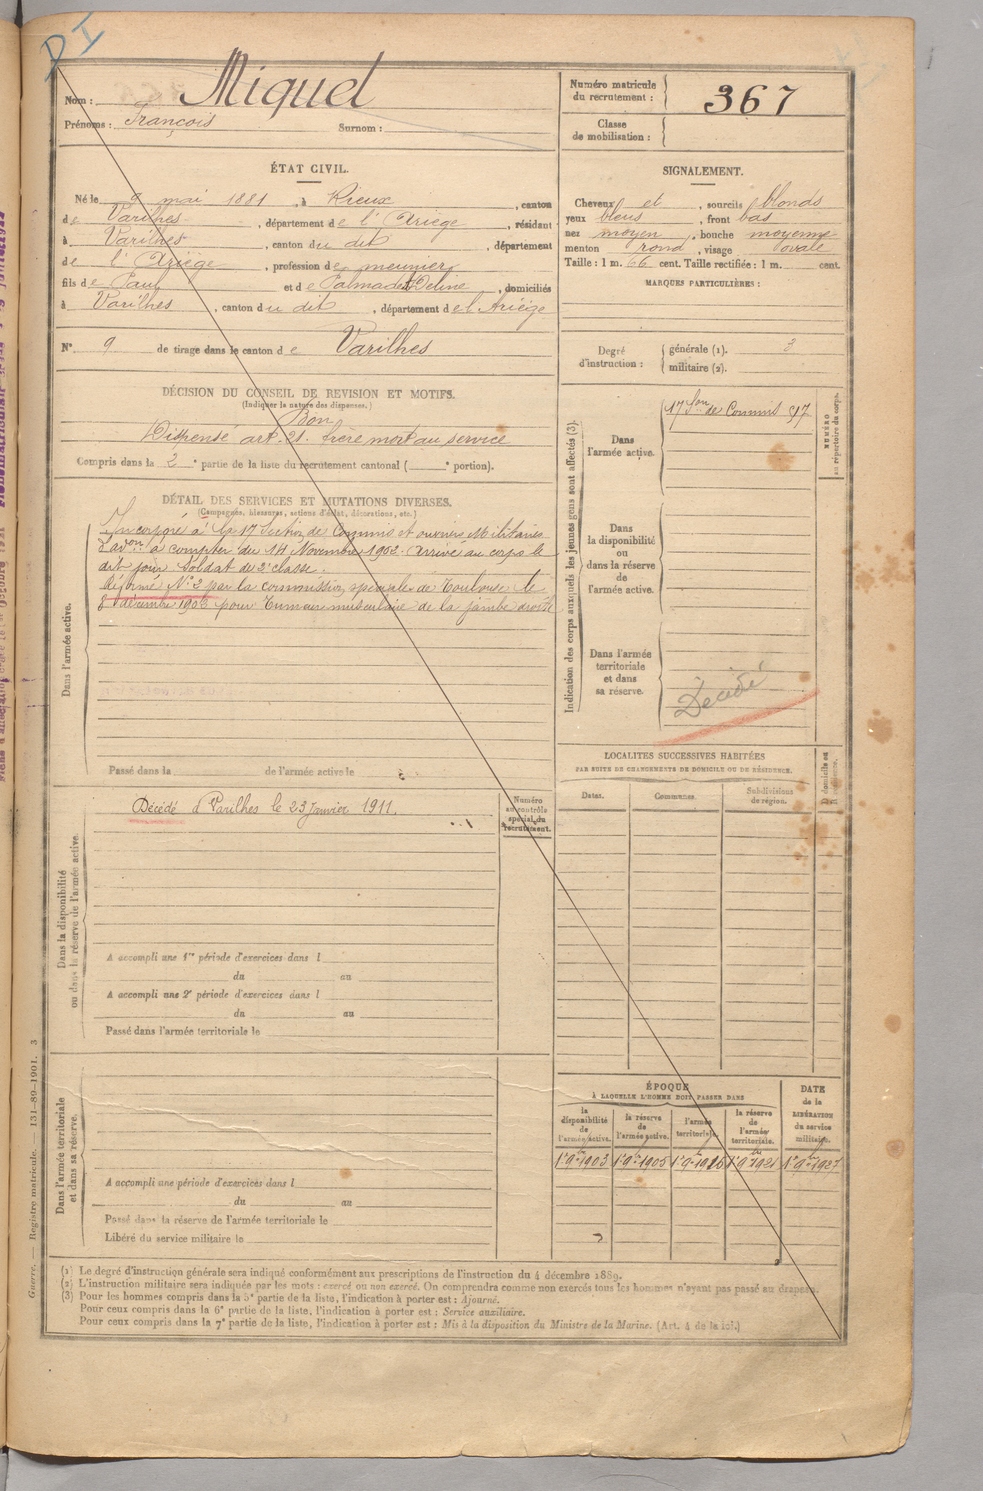 DI
Nom : Miquel
Prénoms : François Surnom :
Numéro matricule du recrutement : 367
Classe de mobilisation :
ÉTAT CIVIL.
Né le 9 mai 1881, à Rieux, canton
de Varilhes, département de l'Ariège, résidant
à Varilhes, canton du dit, département
de l'Ariège, profession de meunier
fils de Paul et de Palmade Deline, domiciliés
à Varilhes, canton du dit, département de l'Ariège
N° 9 de tirage dans le canton de Varilhes
SIGNALEMENT.
Cheveux et, sourcils blonds
yeux bleus, front bas
nez moyen, bouche moyenne
menton rond, visage ovale
Taille : 1 m. 66 cent. Taille rectifiée : 1 m. cent.
MARQUES PARTICULIÈRES :
Degré d'instruction : générale (1). 3
militaire (2).
DÉCISION DU CONSEIL DE REVISION ET MOTIFS.
(Indiquer la nature des dispenses.)
Bon
Dispensé art. 21. frère mort au service
Compris dans la 2e partie de la liste du recrutement cantonal ( e portion).
DÉTAIL DES SERVICES ET MUTATIONS DIVERSES.
(Campagnes, blessures, actions d'éclat, décorations, etc.)
Dans l'armée active.
Incorporé à la 17 Section de Commis et ouvriers Militaires
d'adon à compter du 14 Novembre 1902. Arrivé au corps le
dit jour Soldat de 2e classe.
Réformé N° 2 par la commission spéciale de Toulouse le
8 décembre 1903 pour tumeur musculaire de la jambe droite
Passé dans la de l'armée active le
Indication des corps auxquels les jeunes gens sont affectés (3).
Dans l'armée active.
17 Son de Commis
NUMÉRO au répertoire du corps.
Dans la disponibilité ou dans la réserve de l'armée active.
Dans l'armée territoriale et dans sa réserve.
Décédé
LOCALITÉS SUCCESSIVES HABITÉES
PAR SUITE DE CHANGEMENTS DE DOMICILE OU DE RÉSIDENCE.
Dates. Communes. Subdivisions de région. D domicile ou R résidence.
Dans la disponibilité ou dans la réserve de l'armée active.
Décédé à Varilhes le 23 Janvier 1911.
Numéro au contrôle spécial du recrutement.
A accompli une 1re période d'exercices dans l
du au
A accompli une 2e période d'exercices dans l
du au
Passé dans l'armée territoriale le
Dans l'armée territoriale et dans sa réserve.
A accompli une période d'exercices dans l
du au
Passé dans la réserve de l'armée territoriale le
Libéré du service militaire le
ÉPOQUE
À LAQUELLE L'HOMME DOIT PASSER DANS
la disponibilité de l'armée active.
la réserve de l'armée active.
l'armée territoriale.
la réserve de l'armée territoriale.
DATE de la LIBÉRATION du service militaire.
1er 9bre 1903 1er 9bre 1905 1er 9bre 1915 1er 9bre 1921 1er 9bre 1927
(1) Le degré d'instruction générale sera indiqué conformément aux prescriptions de l'instruction du 4 décembre 1889.
(2) L'instruction militaire sera indiquée par les mots : exercé ou non exercé. On comprendra comme non exercés tous les hommes n'ayant pas passé au drapeau.
(3) Pour les hommes compris dans la 5e partie de la liste, l'indication à porter est : Ajourné.
Pour ceux compris dans la 6e partie de la liste, l'indication à porter est : Service auxiliaire.
Pour ceux compris dans la 7e partie de la liste, l'indication à porter est : Mis à la disposition du Ministre de la Marine. (Art. 4 de la loi.)
Guerre. — Registre matricule. — 131-89-1901. 3